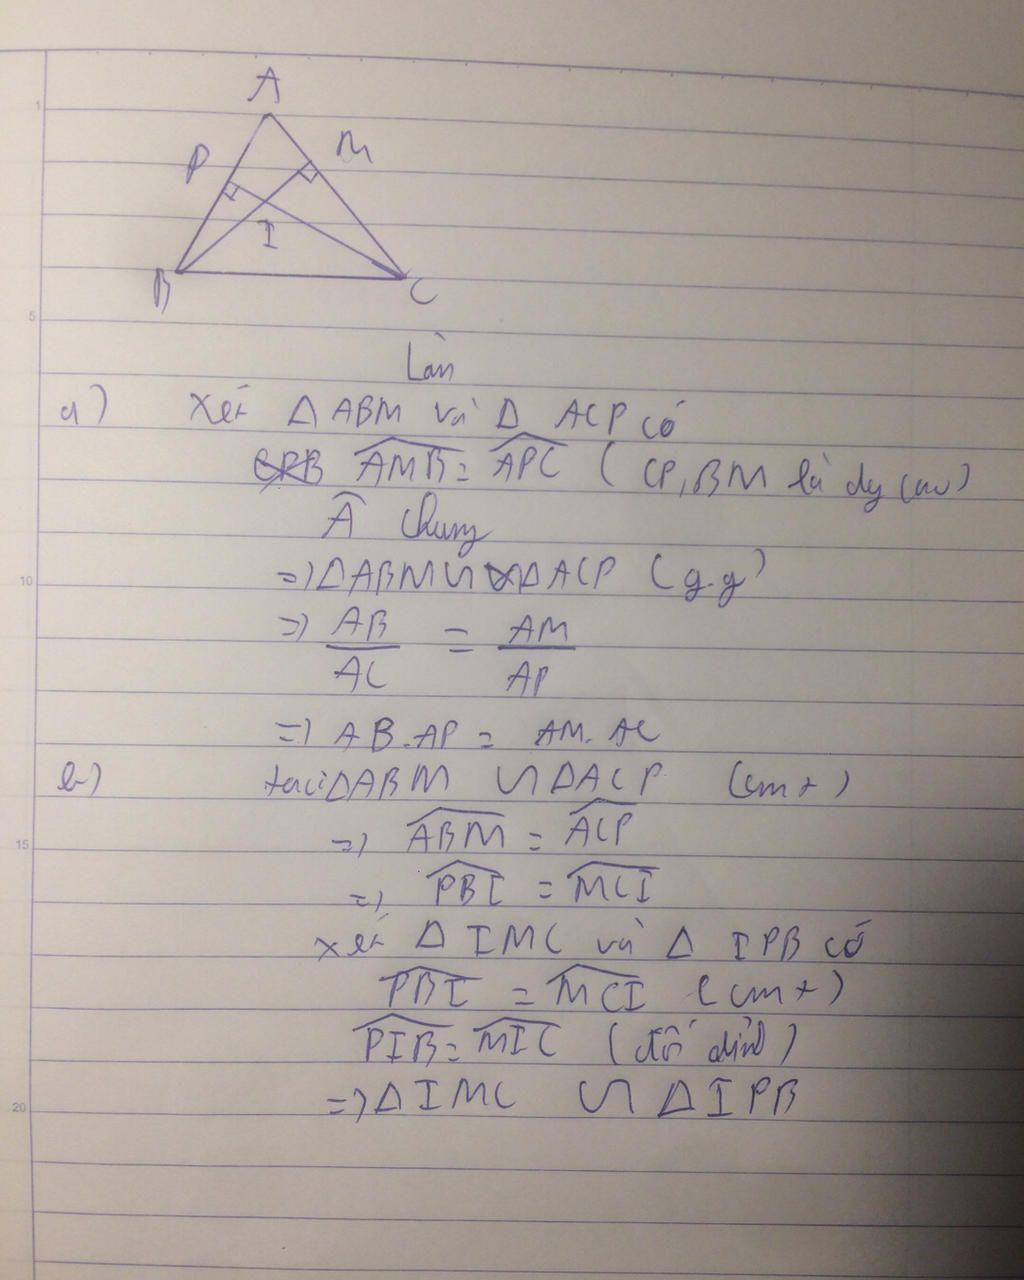 A
P
M
I
B
C
Làm
a) Xét Δ ABM và Δ ACP có
AMB = APC ( CP, BM là đg cao)
A chung
=> Δ ABM ∽ Δ ACP (g.g)
=> AB/AC = AM/AP
=> AB.AP = AM.AC
b) ta có Δ ABM ∽ Δ ACP (cmt)
=> ABM = ACP
=> PBI = MCI
xét Δ IMC và Δ IPB có
PBI = MCI (cmt)
PIB = MIC (đối đỉnh)
=> Δ IMC ∽ Δ IPB
1
5
10
15
20